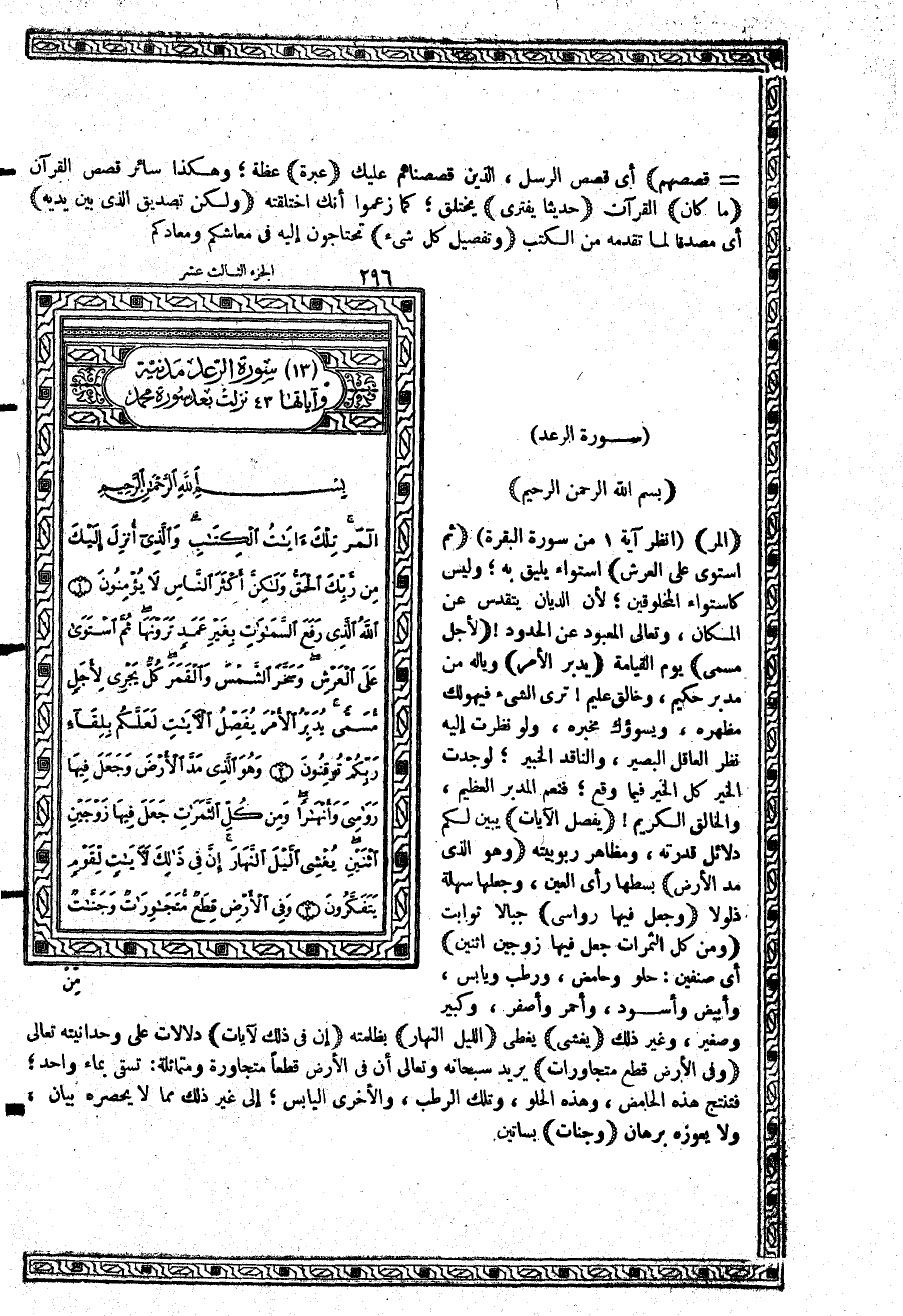 = قصصهم) أى قصص الرسل ، الذين قصصناهم عليك (عبرة) عظة ؛ وهكذا سائر قصص القرآن
(ما كان) القرآن (حديثا يفترى) يختلق ؛ كما زعموا أنك اختلقته (ولكن تصديق الذى بين يديه)
أى مصدقا لما تقدمه من الكتب (وتفصيل كل شىء) تحتاجون إليه فى معاشكم ومعادكم
٢٩٦ الجزء الثالث عشر
(١٣) سورة الرعد مدنية
وآياتها ٤٣ نزلت بعد سورة محمد
بسم الله الرحمن الرحيم
الٓمٓرۚ تِلْكَ ءَايَٰتُ ٱلْكِتَٰبِۗ وَٱلَّذِىٓ أُنزِلَ إِلَيْكَ
مِن رَّبِّكَ ٱلْحَقُّ وَلَٰكِنَّ أَكْثَرَ ٱلنَّاسِ لَا يُؤْمِنُونَ ۝١
ٱللَّهُ ٱلَّذِى رَفَعَ ٱلسَّمَٰوَٰتِ بِغَيْرِ عَمَدٍ تَرَوْنَهَاۖ ثُمَّ ٱسْتَوَىٰ
عَلَى ٱلْعَرْشِۖ وَسَخَّرَ ٱلشَّمْسَ وَٱلْقَمَرَۖ كُلٌّ يَجْرِى لِأَجَلٍ
مُّسَمًّىۚ يُدَبِّرُ ٱلْأَمْرَ يُفَصِّلُ ٱلْآيَٰتِ لَعَلَّكُم بِلِقَآءِ
رَبِّكُمْ تُوقِنُونَ ۝٢ وَهُوَ ٱلَّذِى مَدَّ ٱلْأَرْضَ وَجَعَلَ فِيهَا
رَوَٰسِىَ وَأَنْهَٰرًاۖ وَمِن كُلِّ ٱلثَّمَرَٰتِ جَعَلَ فِيهَا زَوْجَيْنِ
ٱثْنَيْنِۖ يُغْشِى ٱلَّيْلَ ٱلنَّهَارَۚ إِنَّ فِى ذَٰلِكَ لَآيَٰتٍ لِّقَوْمٍ
يَتَفَكَّرُونَ ۝٣ وَفِى ٱلْأَرْضِ قِطَعٌ مُّتَجَٰوِرَٰتٌ وَجَنَّٰتٌ
مِّنْ
(سورة الرعد)
(بسم الله الرحمن الرحيم)
(المر) (انظر آية ١ من سورة البقرة) (ثم
استوى على العرش) استواء يليق به ؛ وليس
كاستواء المخلوقين ؛ لأن الديان يتقدس عن
المكان ، وتعالى المعبود عن الحدود ! (لأجل
مسمى) يوم القيامة (يدبر الأمر) وياله من
مدبر حكيم ، وخالق عليم ! ترى الشىء فيهولك
مظهره ، ويسوؤك مخبره ، ولو نظرت إليه
نظر العاقل البصير ، والناقد الخبير ؛ لوجدت
الخير كل الخير فيما وقع ؛ فنعم المدبر العظيم ،
والخالق الكريم ! (يفصل الآيات) يبين لكم
دلائل قدرته ، ومظاهر ربوبيته (وهو الذى
مد الأرض) بسطها رأى العين ، وجعلها سهلة
ذلولا (وجعل فيها رواسى) جبالا ثوابت
(ومن كل الثمرات جعل فيها زوجين اثنين)
أى صنفين : حلو وحامض ، ورطب ويابس ،
وأبيض وأسود ، وأحمر وأصفر ، وكبير
وصغير ، وغير ذلك (يغشى) يغطى (الليل النهار) بظلمته (إن فى ذلك لآيات) دلالات على وحدانيته تعالى
(وفى الأرض قطع متجاورات) يريد سبحانه وتعالى أن فى الأرض قطعاً متجاورة ومتماثلة : تسقى بماء واحد ؛
فتنتج هذه الحامض ، وهذه الحلو ، وتلك الرطب ، والأخرى اليابس ؛ إلى غير ذلك مما لا يحصره بيان ،
ولا يعوزه برهان (وجنات) بساتين .